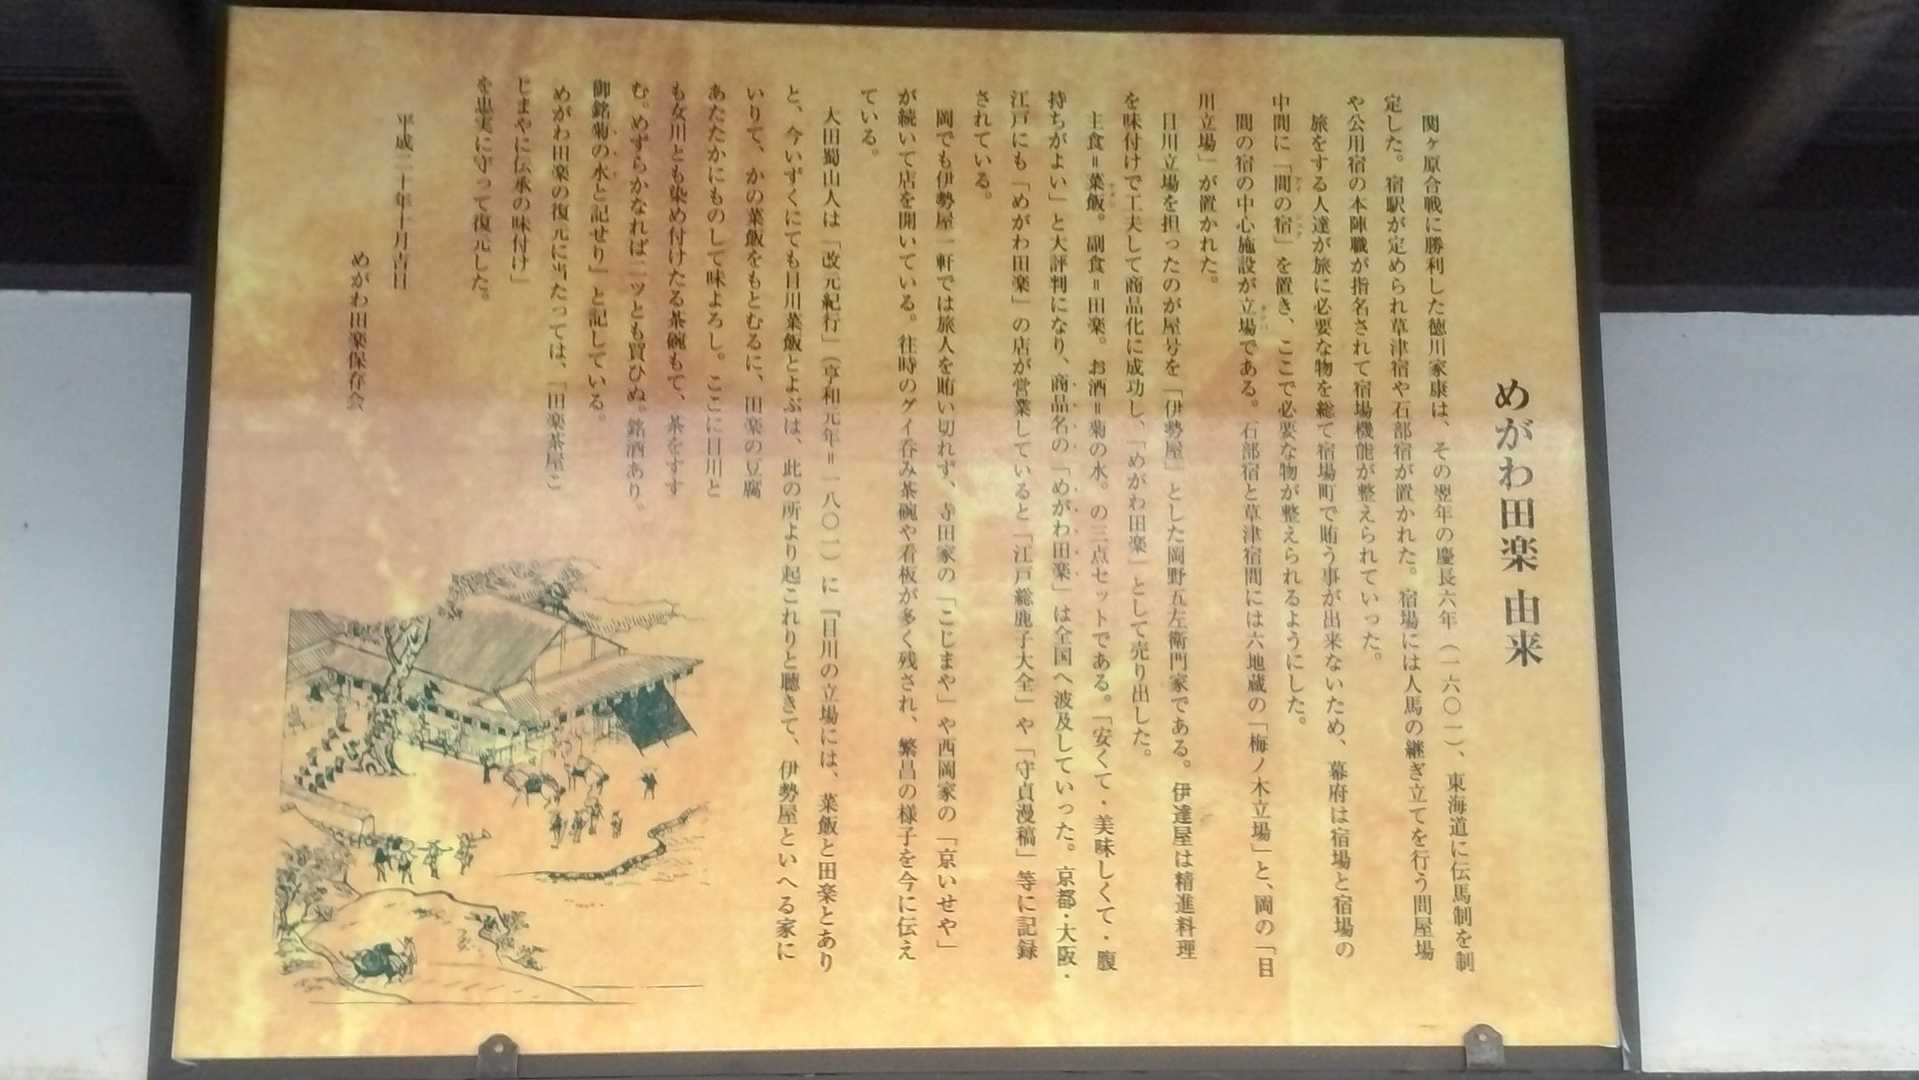 めがわ田楽 由来
関ヶ原合戦に勝利した徳川家康は、その翌年の慶長六年（一六〇一）、東海道に伝馬制を制
定した。宿駅が定められ草津宿や石部宿が置かれた。宿場には人馬の継ぎ立てを行う問屋場
や公用宿の本陣職が指名されて宿場機能が整えられていった。
旅をする人達が旅に必要な物を総て宿場町で賄う事が出来ないため、幕府は宿場と宿場の
中間に「間の宿」を置き、ここで必要な物が整えられるようにした。
間の宿の中心施設が立場である。石部宿と草津宿間には六地蔵の「梅ノ木立場」と、岡の「目
川立場」が置かれた。
目川立場を担ったのが屋号を「伊勢屋」とした岡野五左衛門家である。伊達屋は精進料理
を味付けで工夫して商品化に成功し、「めがわ田楽」として売り出した。
主食＝菜飯。副食＝田楽。お酒＝菊の水。の三点セットである。「安くて・美味しくて・腹
持ちがよい」と大評判になり、商品名の「めがわ田楽」は全国へ波及していった。京都・大阪・
江戸にも「めがわ田楽」の店が営業していると「江戸総鹿子大全」や「守貞漫稿」等に記録
されている。
岡でも伊勢屋一軒では旅人を賄い切れず、寺田家の「こじまや」や西岡家の「京いせや」
が続いて店を開いている。往時のグイ呑み茶碗や看板が多く残され、繁昌の様子を今に伝え
ている。
大田蜀山人は「改元紀行」（享和元年＝一八〇一）に『目川の立場には、菜飯と田楽とあり
と、今いずくにても目川菜飯とよぶは、此の所より起これりと聴きて、伊勢屋といへる家に
いりて、かの菜飯をもとむるに、田楽の豆腐
あたたかにものして味よろし。ここに目川と
も女川とも染め付けたる茶碗もて、茶をすす
む。めずらかなれば二ツとも買ひぬ。銘酒あり。
御銘菊の水と記せり』と記している。
めがわ田楽の復元に当たっては、「田楽茶屋こ
じまやに伝承の味付け」
を忠実に守って復元した。
平成二十年十月吉日
めがわ田楽保存会